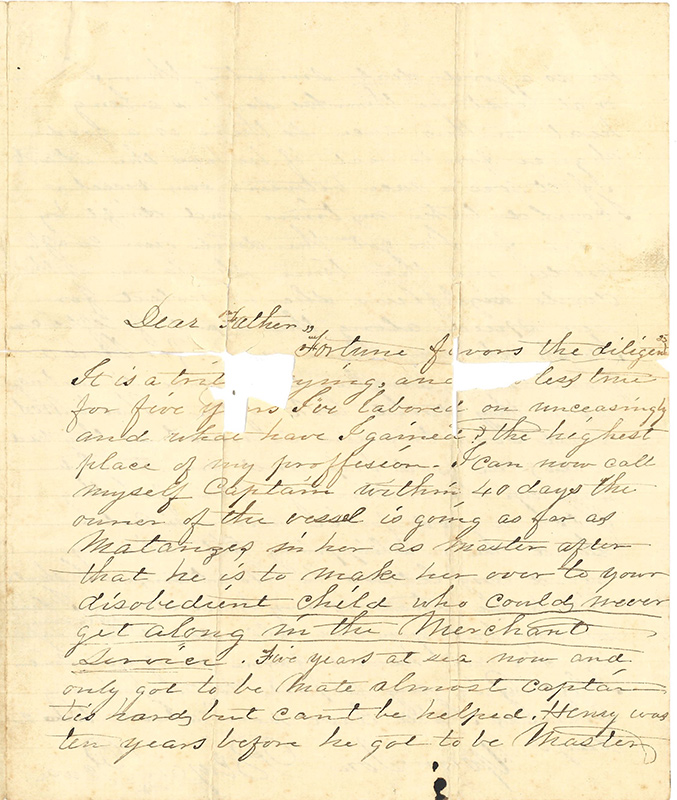 Dear Father,,
"Fortune favors the diligen"
It is a tri ying, and less true
for five years I've labored on unceasingly
and what have I gained? the highest
place of my proffesion. I can now call
myself Captain within 40 days the
owner of the vessel is going as far as
Matanzes in her as master after
that he is to make her over to your
disobedient child who could never
get along in the Merchant
service. Five years at sea now and
only got to be mate almost captain
tis hard, but cant be helped. Henry was
ten years before he got to be Master